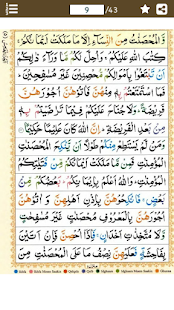 9 /43
وَّالْمُحْصَنٰتُ مِنَ النِّسَآءِ اِلَّا مَا مَلَكَتْ اَيْمَانُكُمْ ۚ
كِتٰبَ اللّٰهِ عَلَيْكُمْ ۚ وَاُحِلَّ لَكُمْ مَّا وَرَآءَ ذٰلِكُمْ
اَنْ تَبْتَغُوْا بِاَمْوَالِكُمْ مُّحْصِنِيْنَ غَيْرَ مُسٰفِحِيْنَ ؕ
فَمَا اسْتَمْتَعْتُمْ بِهٖ مِنْهُنَّ فَاٰتُوْهُنَّ اُجُوْرَهُنَّ
فَرِيْضَةً ؕ وَلَا جُنَاحَ عَلَيْكُمْ فِيْمَا تَرٰضَيْتُمْ بِهٖ
مِنْۢ بَعْدِ الْفَرِيْضَةِ ؕ اِنَّ اللّٰهَ كَانَ عَلِيْمًا حَكِيْمًا
وَمَنْ لَّمْ يَسْتَطِعْ مِنْكُمْ طَوْلًا اَنْ يَّنْكِحَ الْمُحْصَنٰتِ
الْمُؤْمِنٰتِ فَمِنْ مَّا مَلَكَتْ اَيْمَانُكُمْ مِّنْ فَتَيٰتِكُمُ
الْمُؤْمِنٰتِ ؕ وَاللّٰهُ اَعْلَمُ بِاِيْمَانِكُمْ ؕ بَعْضُكُمْ مِّنْۢ
بَعْضٍ ۚ فَانْكِحُوْهُنَّ بِاِذْنِ اَهْلِهِنَّ وَاٰتُوْهُنَّ
اُجُوْرَهُنَّ بِالْمَعْرُوْفِ مُحْصَنٰتٍ غَيْرَ مُسٰفِحٰتٍ
وَّلَا مُتَّخِذٰتِ اَخْدَانٍ ۚ فَاِذَاۤ اُحْصِنَّ فَاِنْ اَتَيْنَ
بِفَاحِشَةٍ فَعَلَيْهِنَّ نِصْفُ مَا عَلَى الْمُحْصَنٰتِ مِنَ